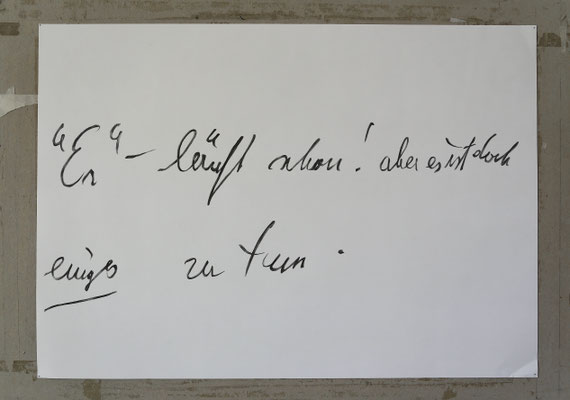 "Er" – läuft schon! aber es ist doch
einiges zu tun.